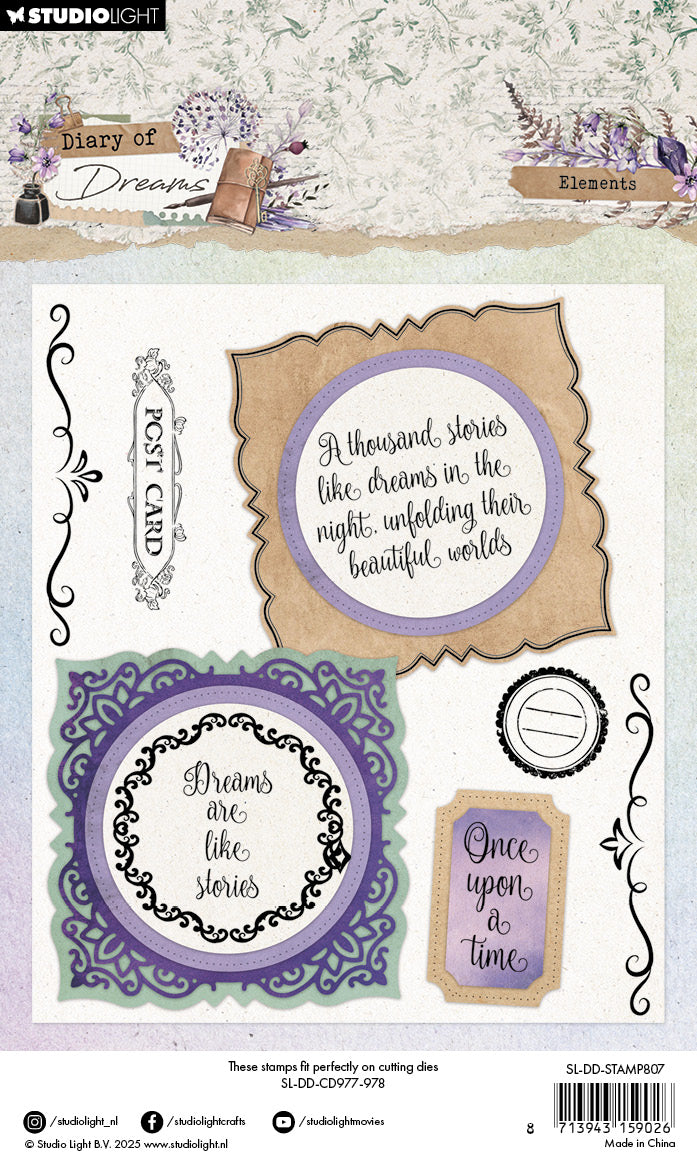 STUDIOLIGHT
Diary of
Dreams
Elements
POST CARD
A thousand stories
like dreams in the
night, unfolding their
beautiful worlds
Dreams
are
like
stories
Once
upon
a
time
These stamps fit perfectly on cutting dies
SL-DD-CD977-978
SL-DD-STAMP807
8 713943 159026
Made in China
/studiolight_nl /studiolightcrafts /studiolightmovies
© Studio Light B.V. 2025 www.studiolight.nl